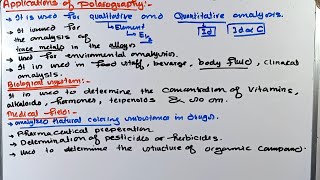 Applications of polarography:-
→ It is used for qualitative and Quantitative analysis.
→ It is used for → Element Id Id ∝ C
the analysis of E½
trace metals in the alloys
→ Used for environmental analysis.
→ It is used in food stuff, bevarge, body fluid, clinacal
analysis.
Biological system:-
→ It is used to determine the concentration of vitamins,
alkaloids, hormones, terpenoids & so on.
Medical field:-
→ analyzed natural coloring substance in drugs.
→ Pharmaceutical preparation
→ Determination of pesticides or herbicides.
→ Used to determine the structure of organic compound.